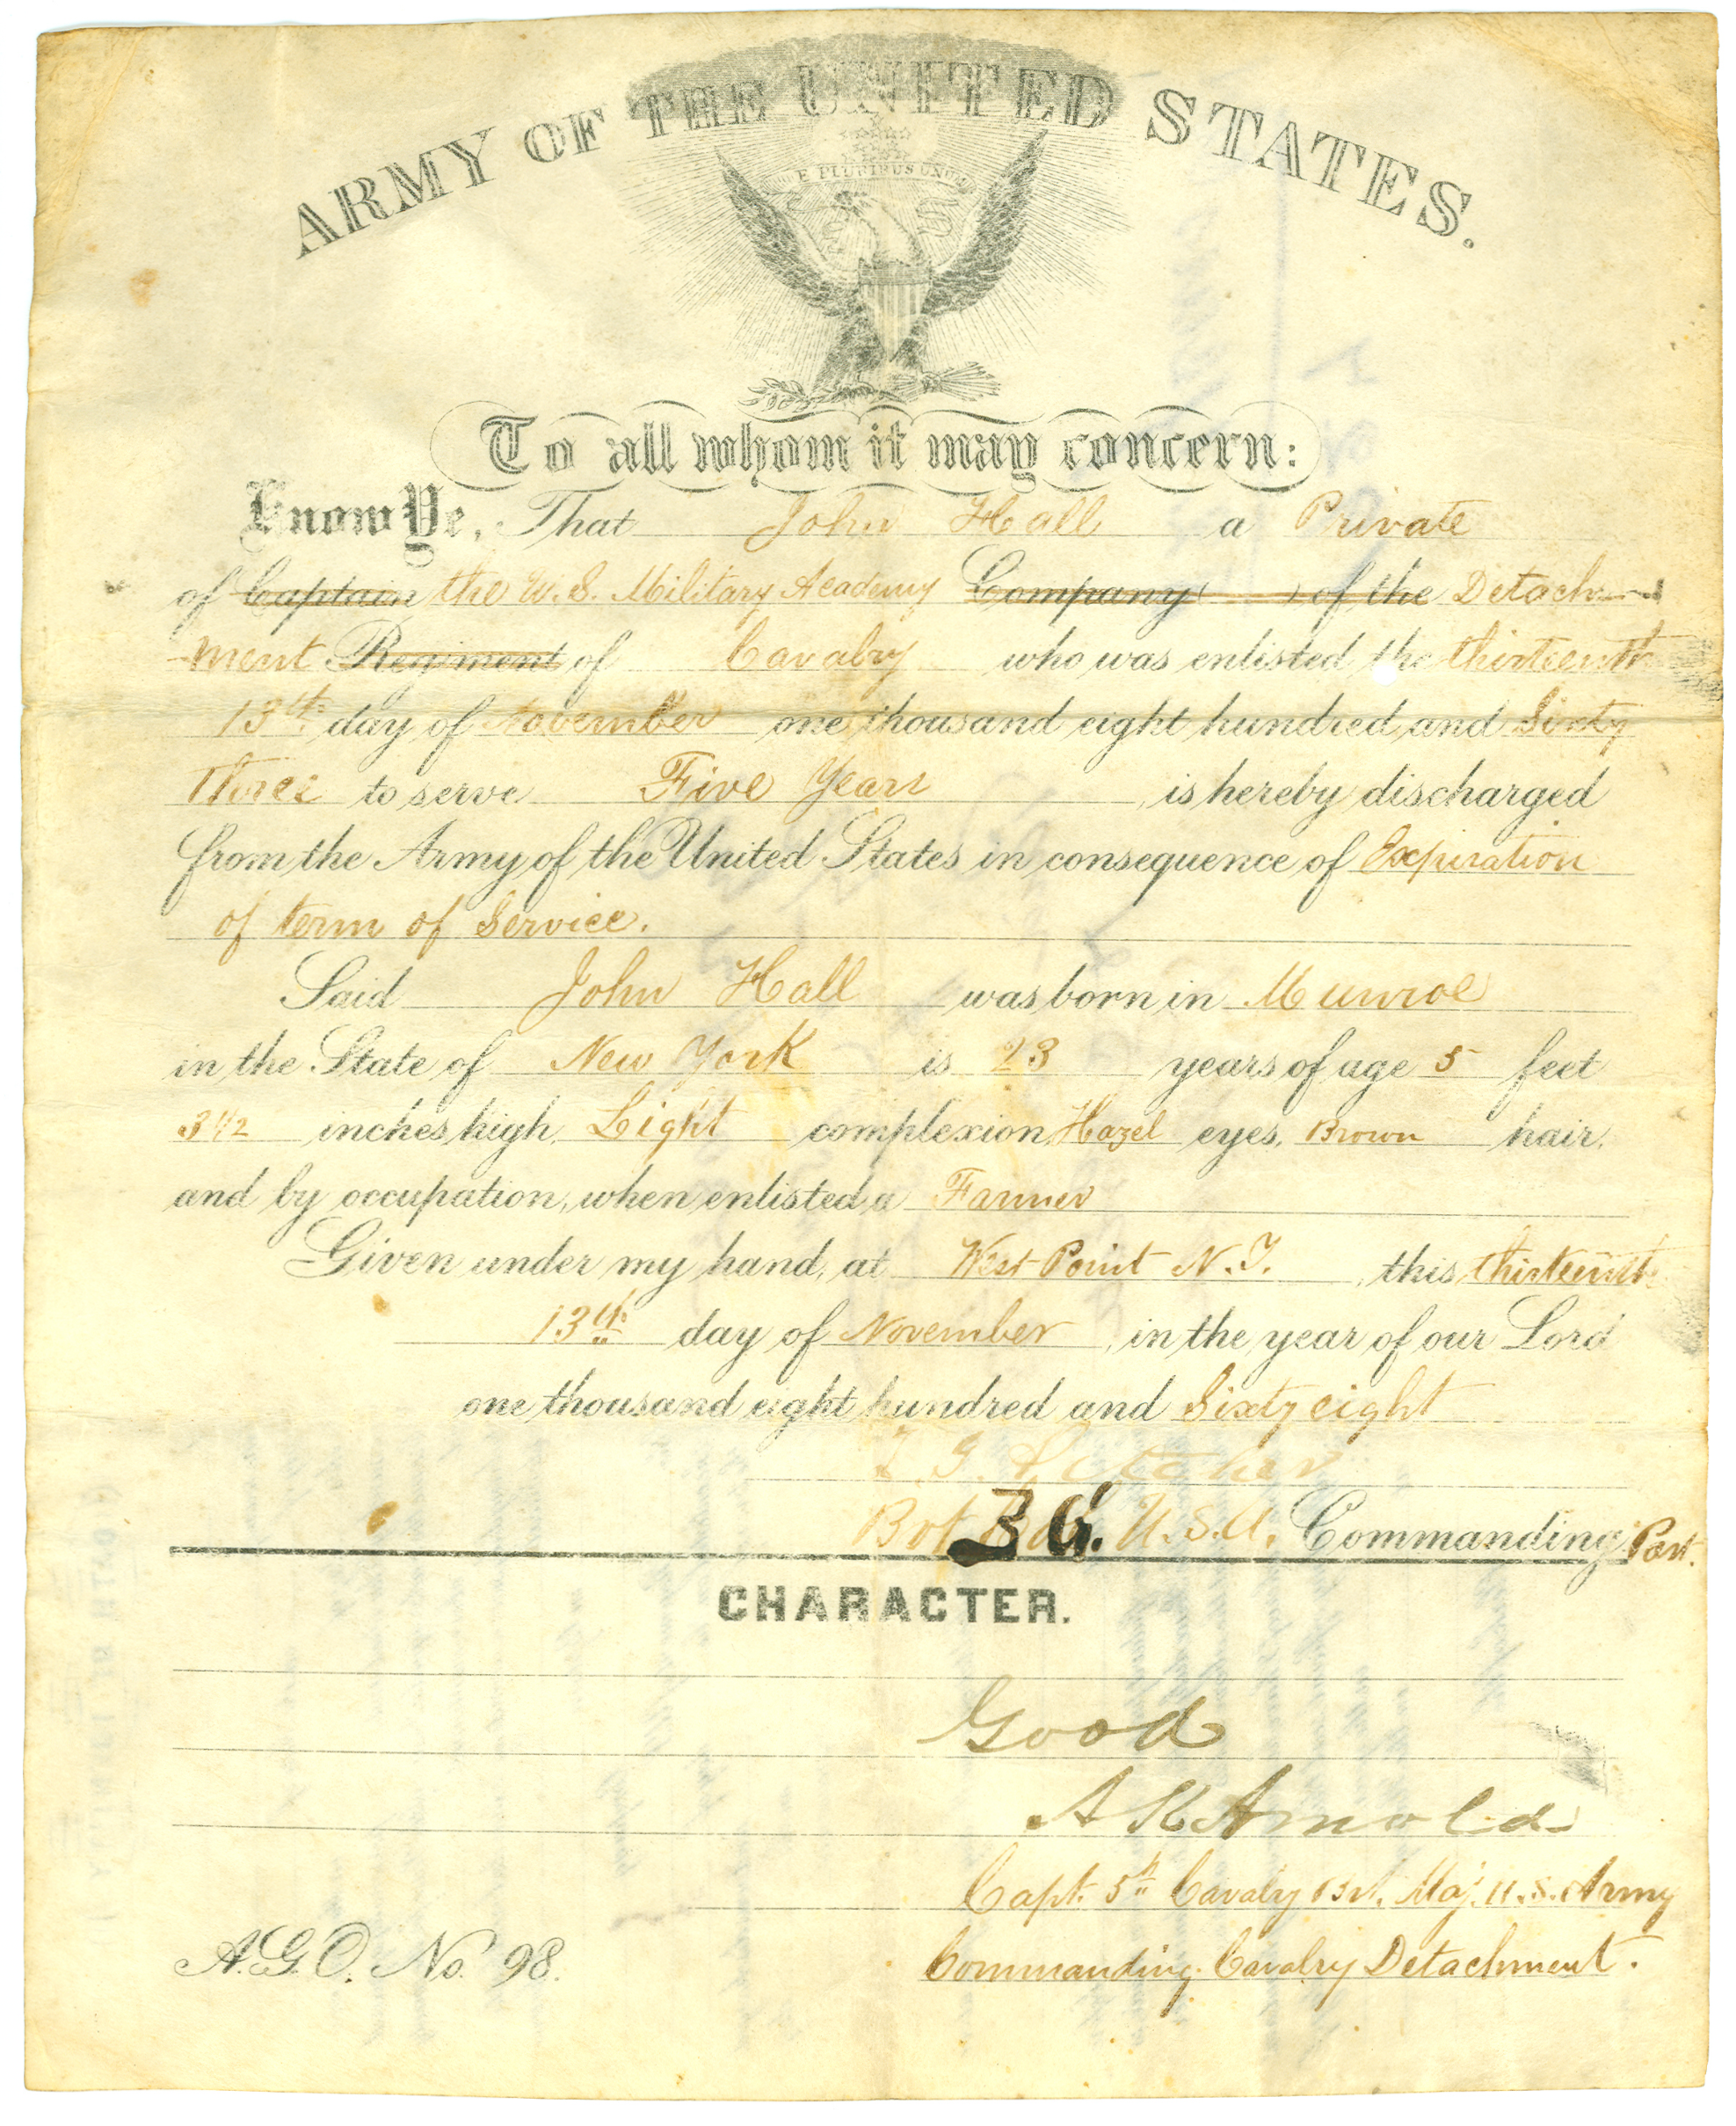 ARMY OF THE UNITED STATES.
E PLURIBUS UNUM
To all whom it may concern:
Know Ye, That John Hall a Private
of Captain the U.S. Military Academy Company ( ) of the Detach-
ment Regiment of Cavalry who was enlisted the thirteenth
13th day of November one thousand eight hundred and Sixty
Three to serve Five Years is hereby discharged
from the Army of the United States in consequence of Expiration
of term of Service.
Said John Hall was born in Munroe
in the State of New York is 23 years of age 5 feet
3 1/2 inches high, Light complexion, Hazel eyes, Brown hair,
and by occupation, when enlisted, a Farmer
Given under my hand, at West Point N.Y. this thirteenth
13th day of November, in the year of our Lord
one thousand eight hundred and Sixty eight
T G Pitcher
Bvt B G. U.S.A. Commanding Post.
CHARACTER.
Good
A K Arnold
Capt. 5th Cavalry Bvt. Maj. U.S. Army
Commanding Cavalry Detachment.
A.G.O. No. 98.